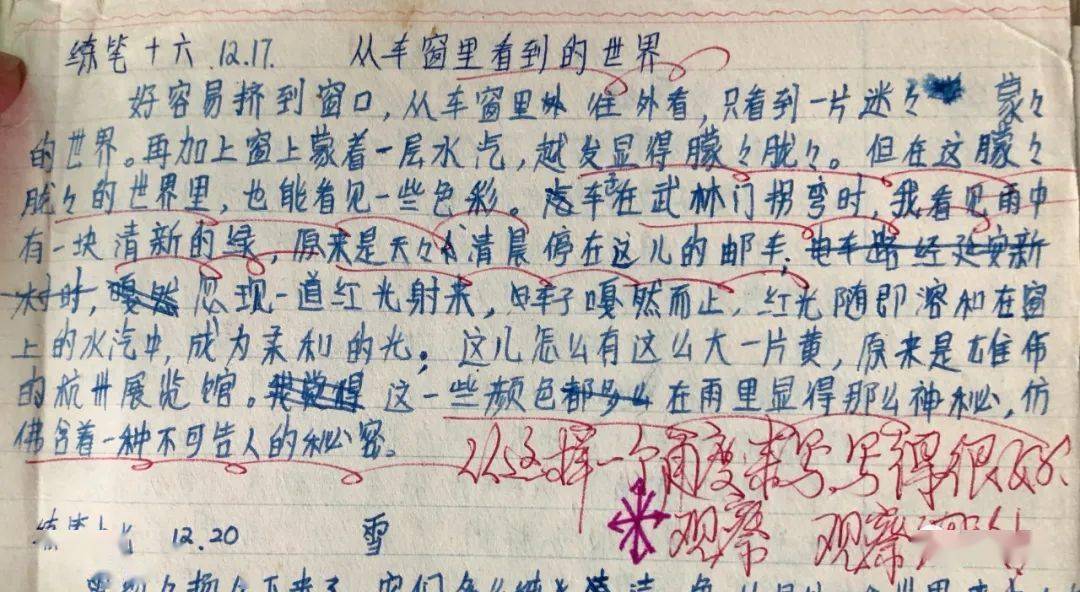 练笔十六 12.17. 从车窗里看到的世界
好容易挤到窗口，从车窗里往外看，只看到一片迷々蒙々
的世界。再加上窗上蒙着一层水汽，越发显得朦々胧々。但在这朦々
胧々的世界里，也能看见一些色彩。车在武林门拐弯时，我看见雨中
有一块清新的绿，原来是天々清晨停在这儿的邮车；电车路经延安新
村时，嘎然忽现一道红光射来，车子嘎然而止，红光随即溶和在窗
上的水汽中，成为柔和的光。这儿怎么有这么大一片黄，原来是雄伟
的杭州展览馆。我觉得这一些颜色都多么在雨里显得那么神秘，仿
佛含着一种不可告人的秘密。
从这样一个角度来写，写得很好
观察 观察
12.20 雪